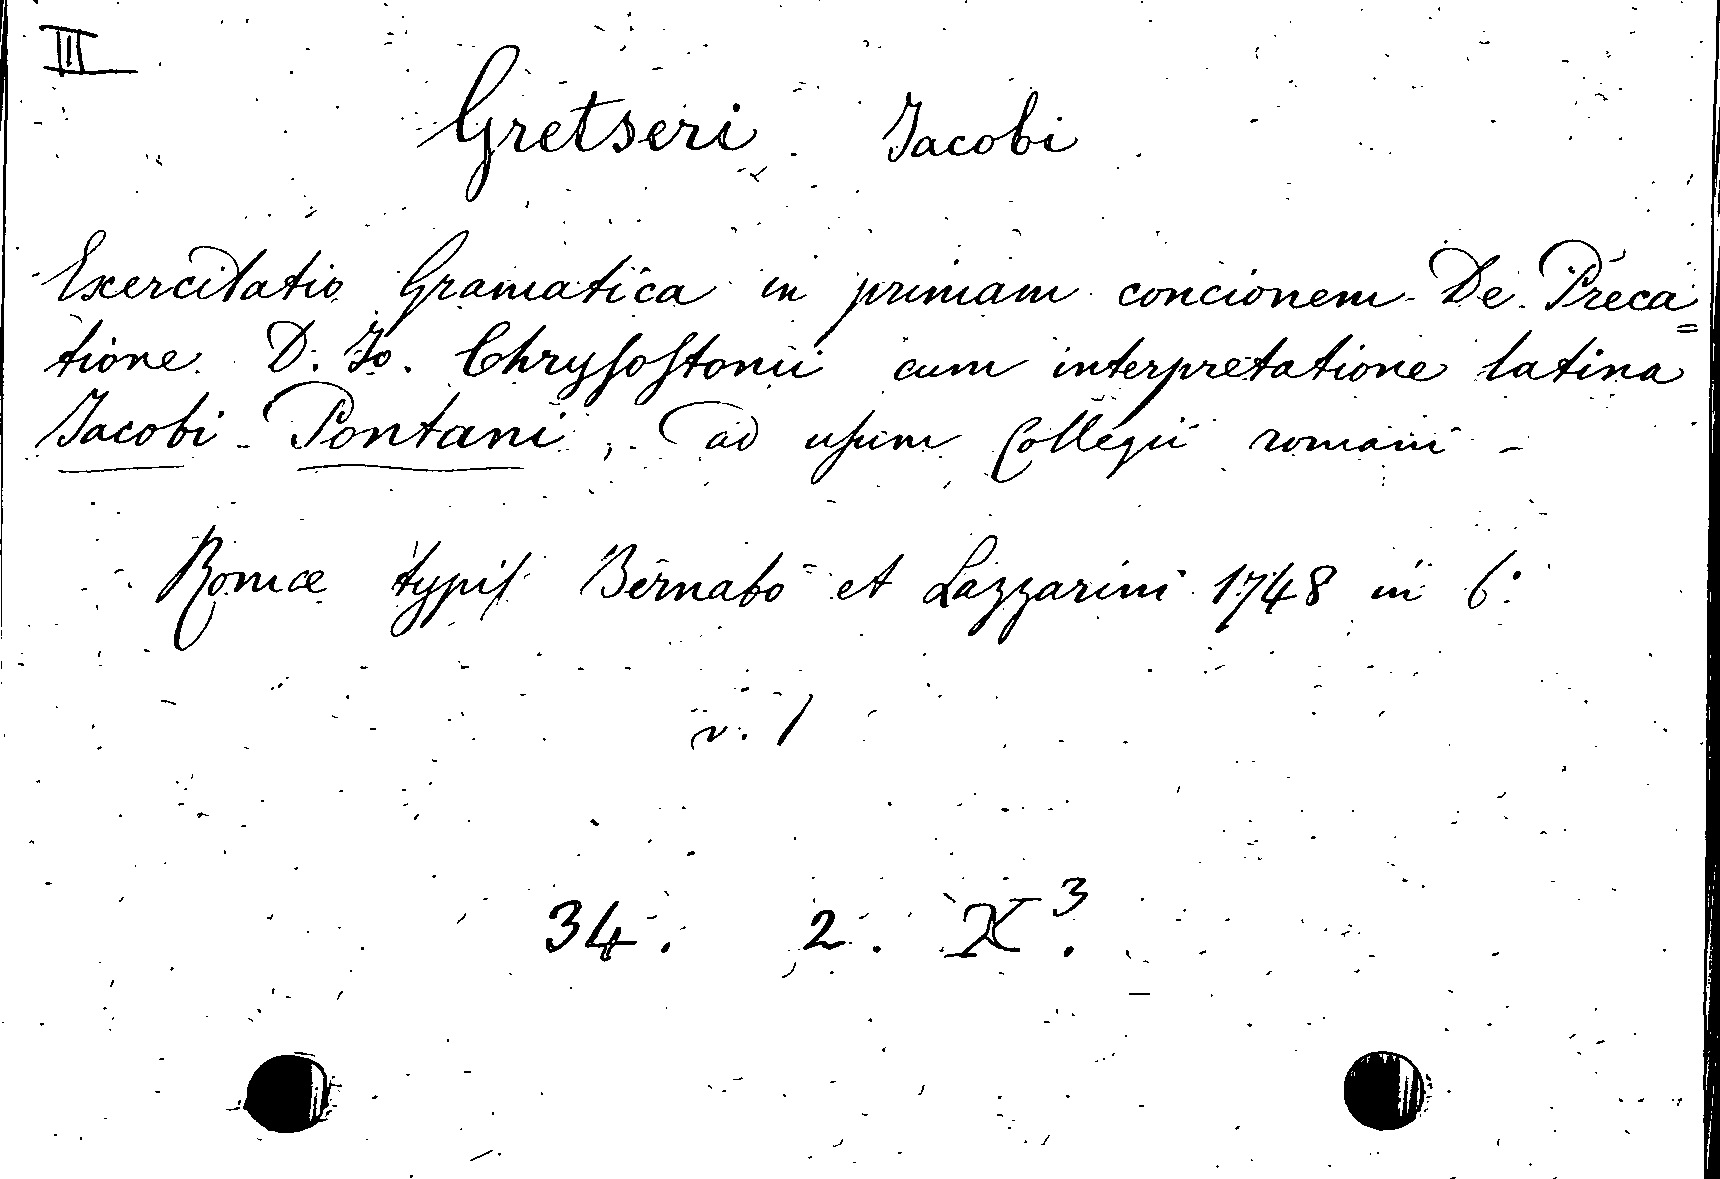 III
Gretseri Jacobi
Exercitatio Gramatica in primam concionem De Preca=
tione D. Jo. Chrysostomi cum interpretatione latina
Jacobi Pontani, ad usum Collegii romani -
Romæ typis Bernabò et Lazzarini 1748 in 6.°
v. 1
34. 2. X³.